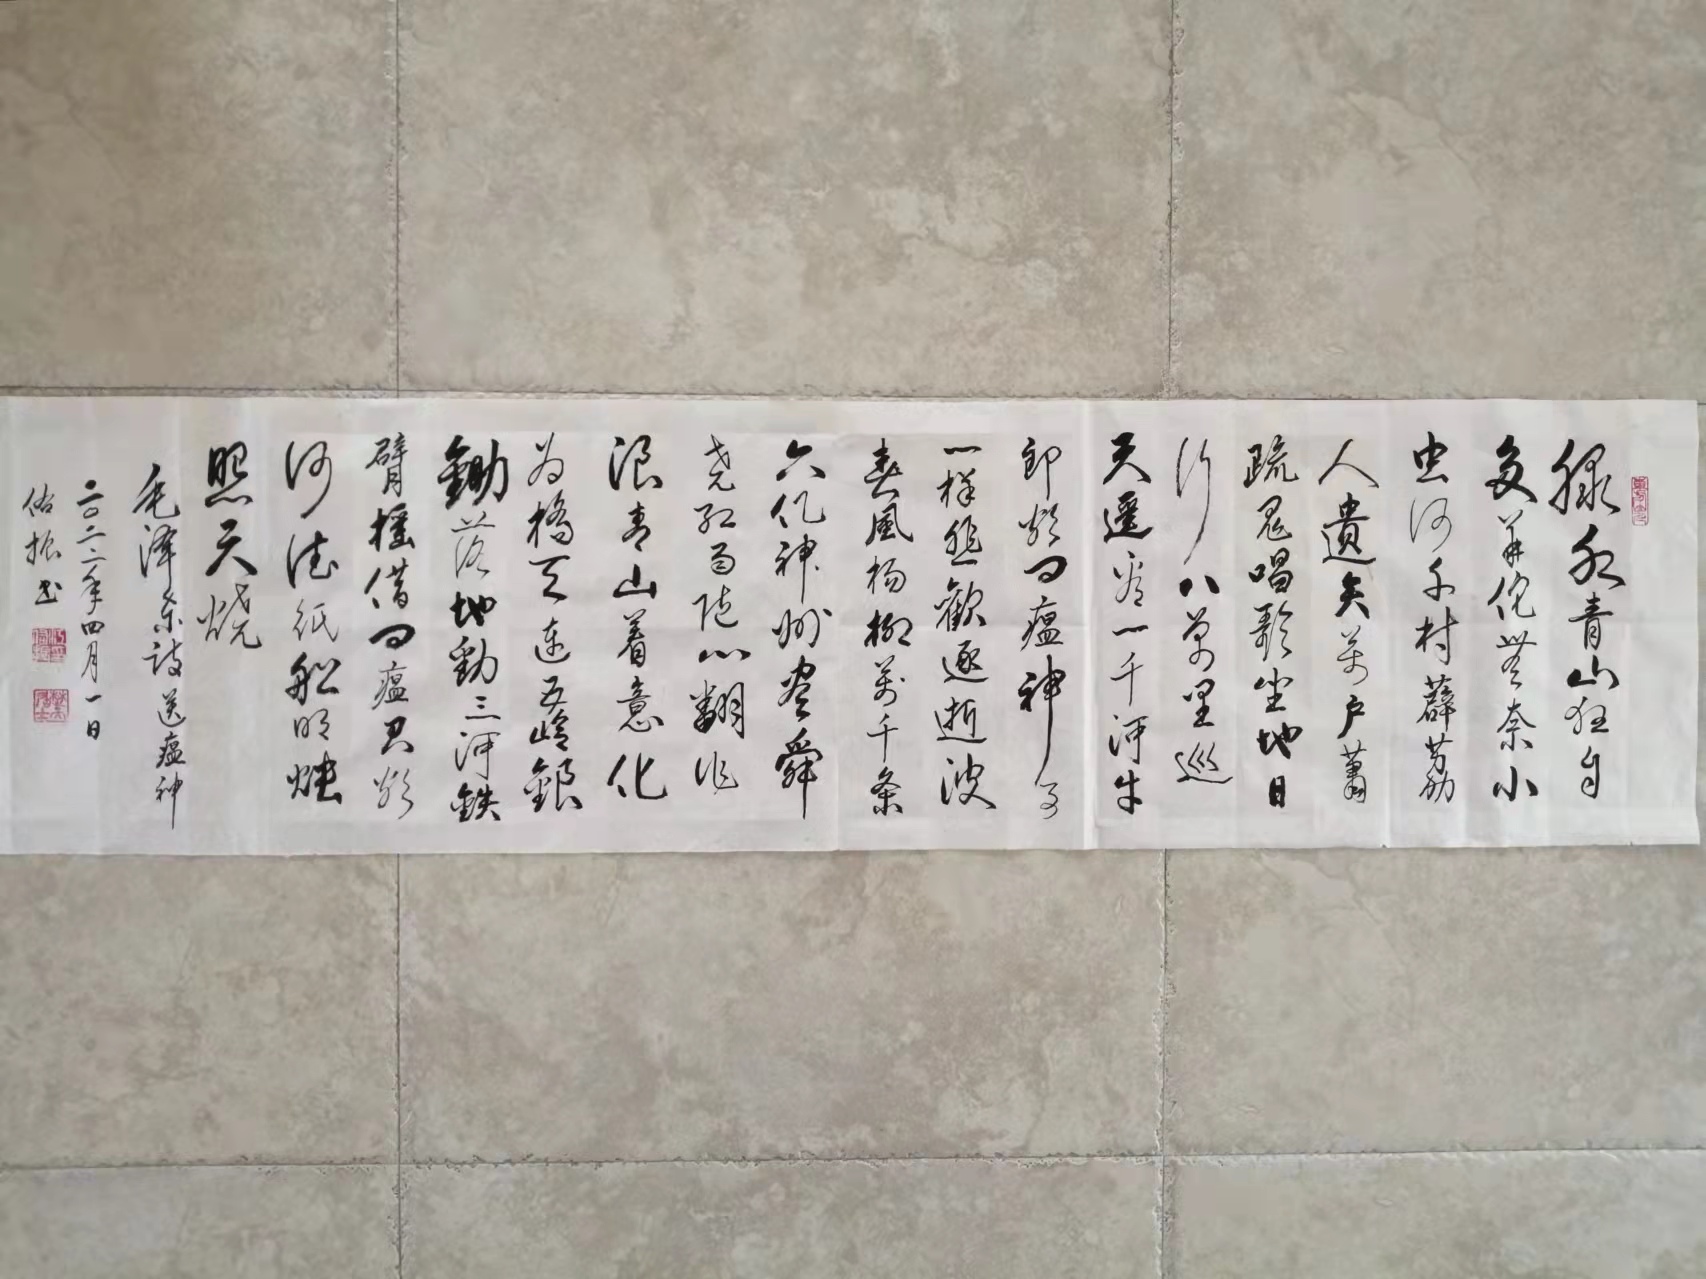 绿水青山狂自
多華佗無奈小
虫何千村薜荔
人遺矢萬户蕭
疏鬼唱歌坐地日
行八萬里巡
天遥看一千河牛
郎欲问瘟神事
一样悲歡逐逝波
春風杨柳萬千条
六亿神州尽舜
尧红雨随心翻作
浪青山着意化
为橋天连五岭銀
鋤落地動三河鉄
臂摇借问瘟君欲
何往纸船明烛
照天烧
毛泽东诗送瘟神
二〇二二年四月一日
佑振书